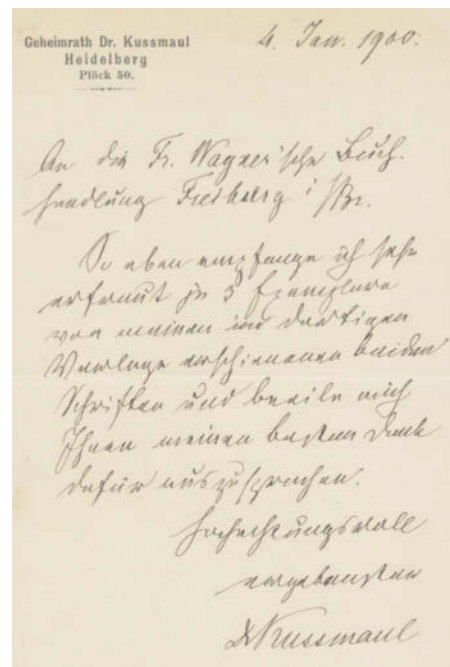 Geheimrath Dr. Kussmaul
Heidelberg
Plöck 50.
4. Jan. 1900.
An die Fr. Wagner'sche Buch-
handlung Freiburg i/Br.
So eben empfange ich sehr
erfreut je 3 Exemplare
von meinen im dortigen
Verlage erschienenen beiden
Schriften und beeile mich
Ihnen meinen besten Dank
dafür auszusprechen.
Hochachtungsvoll
ergebenster
Dr Kussmaul